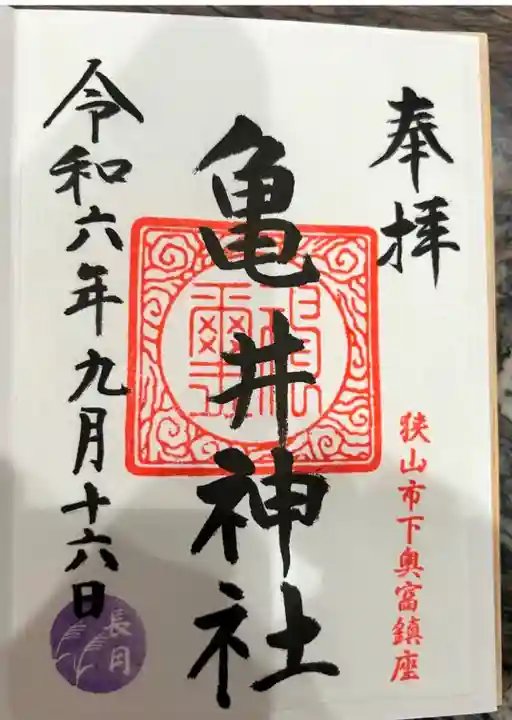 奉拝
狭山市下奥富鎮座
亀井神社
令和六年九月十六日
長月